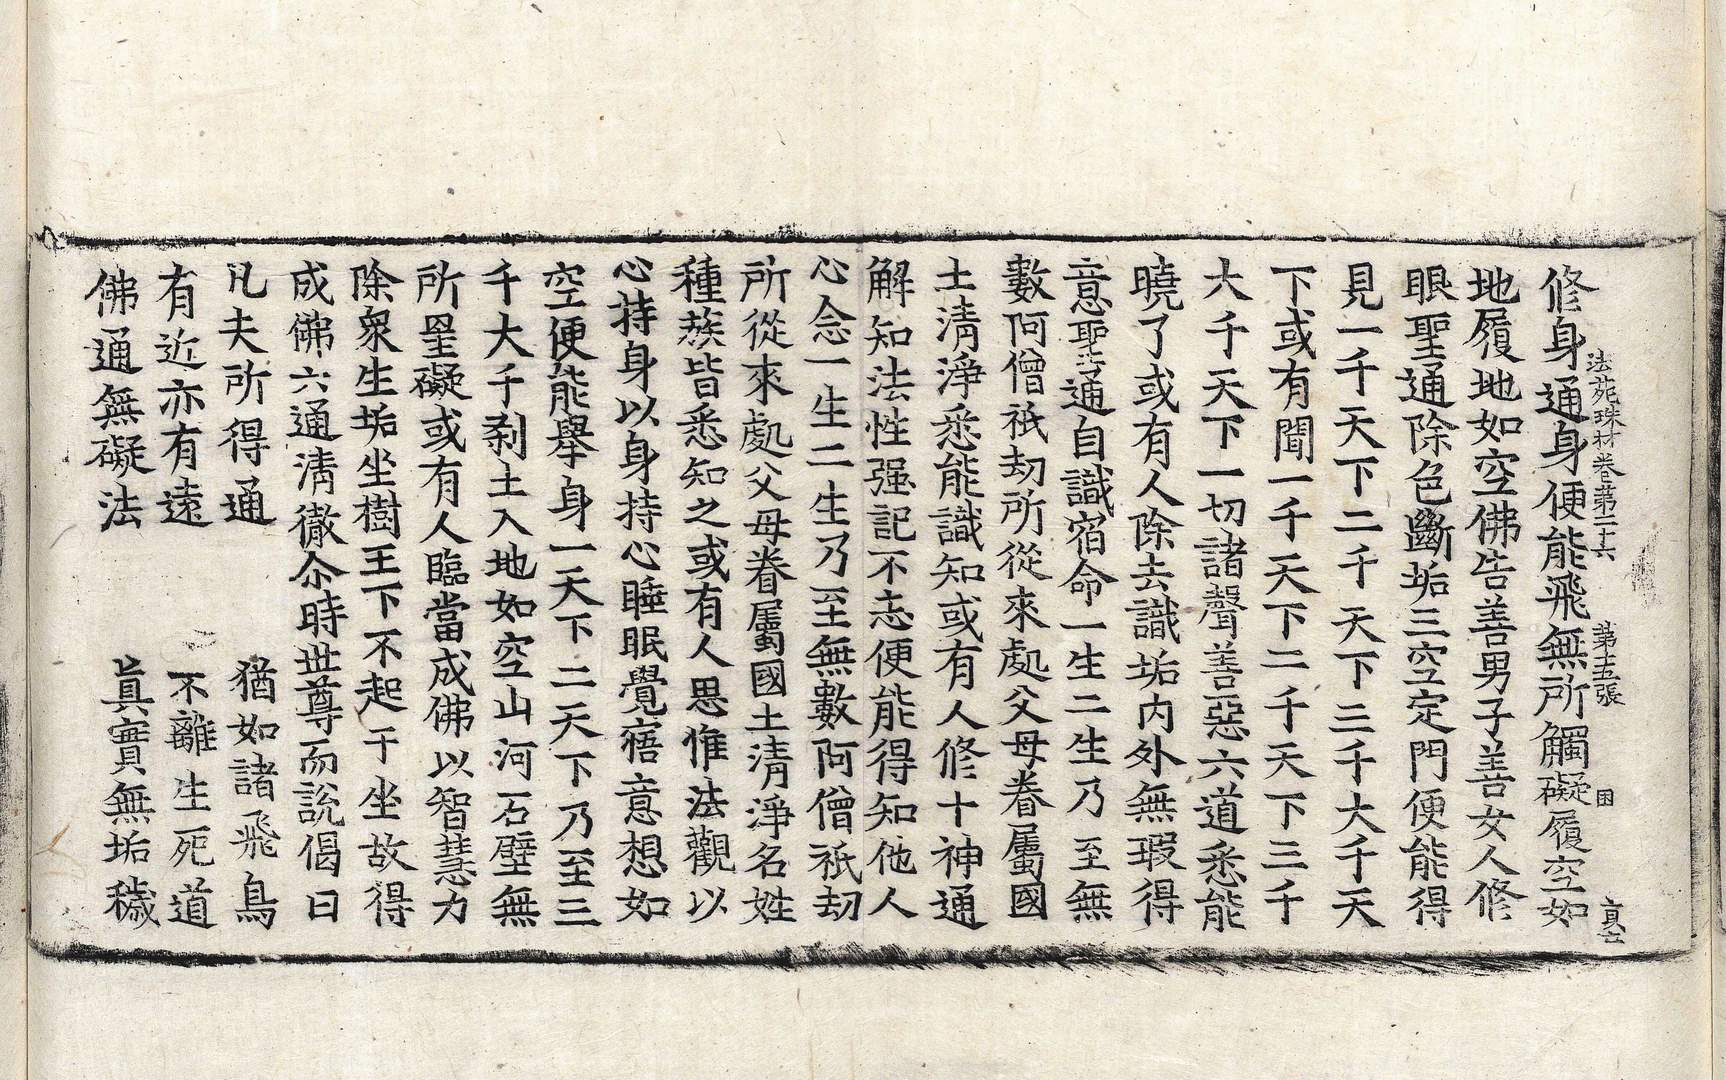 法苑珠林卷第二十六 第五張 因 真六
修身通身便能飛無所觸礙履空如
地履地如空佛告善男子善女人修
眼聖通除色斷垢三空定門便能得
見一千天下二千天下三千大千天
下或有聞一千天下二千天下三千
大千天下一切諸聲善惡六道悉能
曉了或有人除去識垢内外無瑕得
意聖通自識宿命一生二生乃至無
數阿僧祇劫所從來處父母眷屬國
土清淨悉能識知或有人修十神通
解知法性强記不忘便能得知他人
心念一生二生乃至無數阿僧祇劫
所從來處父母眷屬國土清淨名姓
種蔟皆悉知之或有人思惟法觀以
心持身以身持心睡眠覺寤意想如
空便能舉身一天下二天下乃至三
千大千刹土入地如空山河石壁無
所罣礙或有人臨當成佛以智慧力
除衆生垢坐樹王下不起于坐故得
成佛六通清徹尒時世尊而說偈曰
凡夫所得通 猶如諸飛鳥
有近亦有遠 不離生死道
佛通無礙法 真實無垢穢